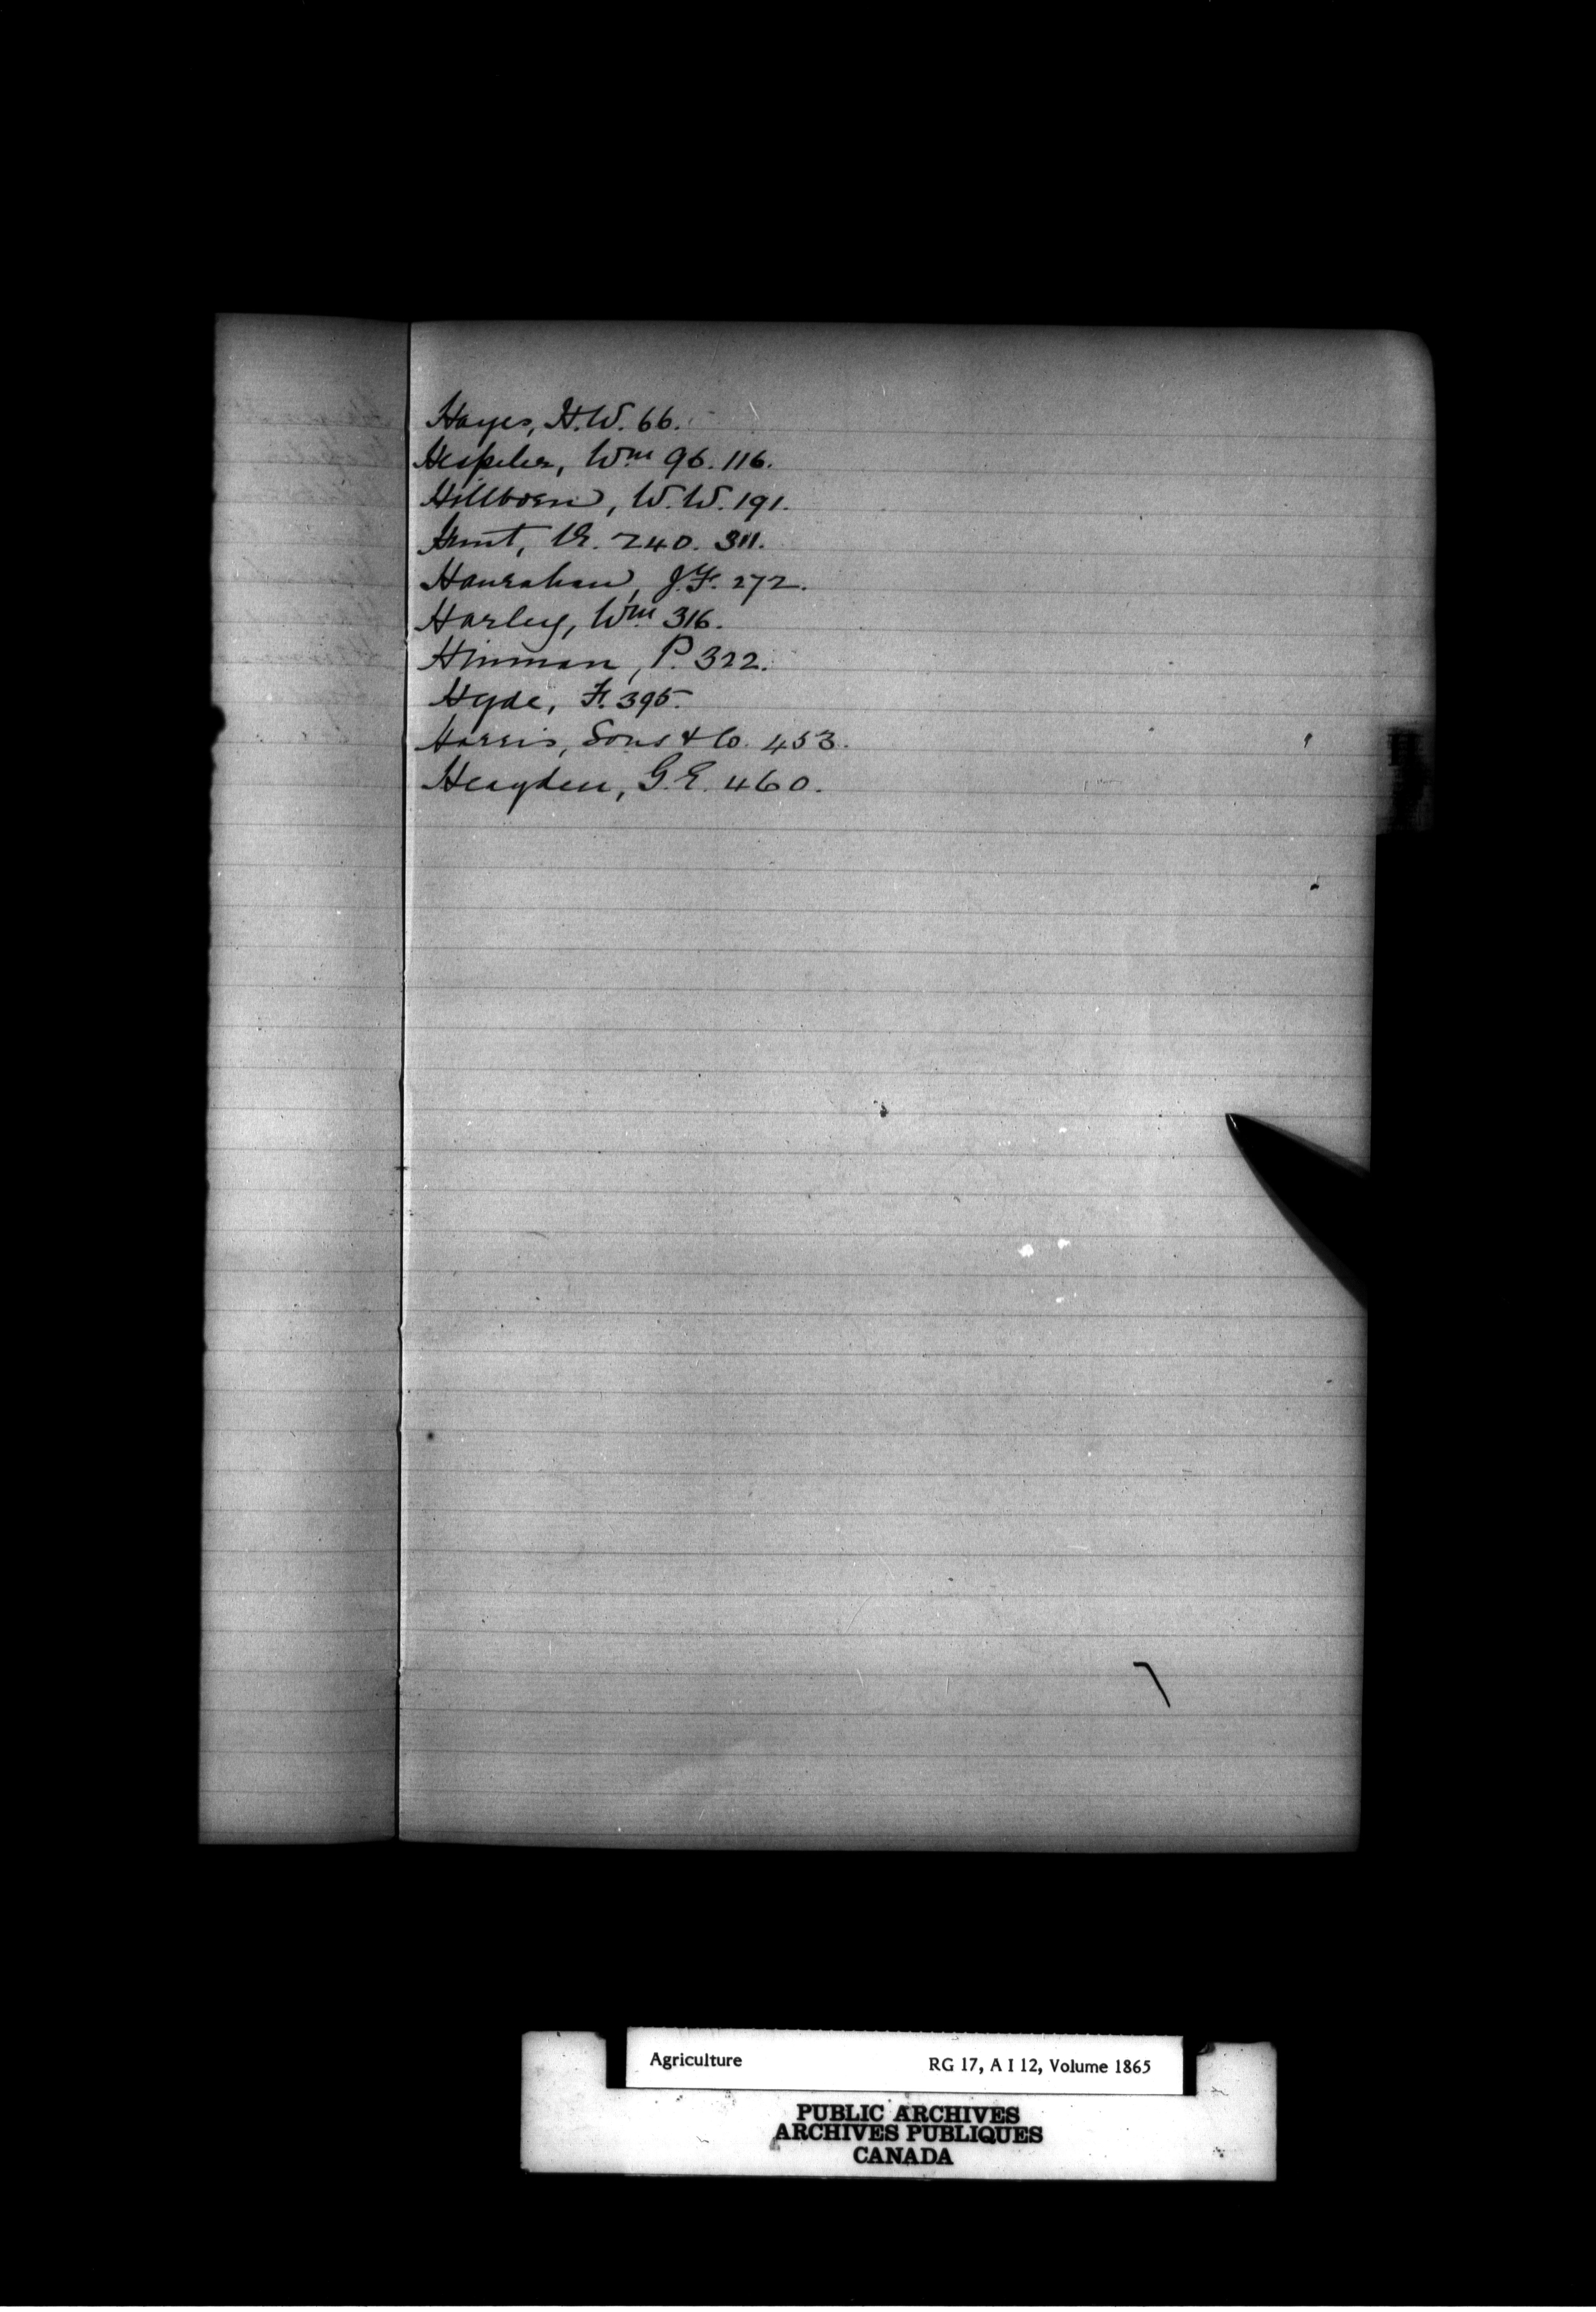 Hayes, H.W. 66.
Hespeler, Wm 96. 116.
Hillborn, W.W. 191.
Hunt, 240. 311.
Hanrahan, J.F. 272.
Harley, Wm 316.
Hinman, P. 322.
Hyde, F. 395.
Harris, Sons & Co. 453.
Heayden, G.E. 460.
Agriculture RG 17, A I 12, Volume 1865
PUBLIC ARCHIVES
ARCHIVES PUBLIQUES
CANADA